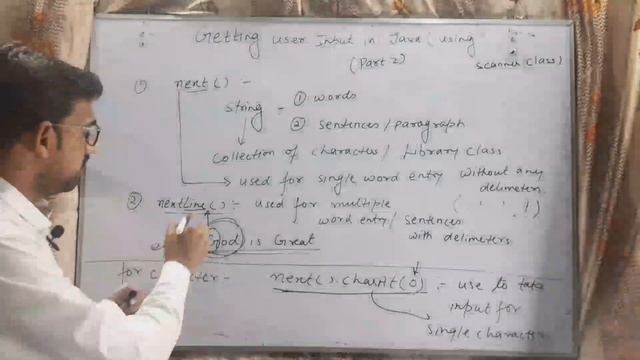 Getting user Input in Java (using
(Part 2) scanner class)
① next() -
string = ① words
② sentences/paragraph
collection of character/Library class
used for single word entry without any
delimeters
② nextLine() :- used for multiple ( , . !)
word entry/sentences
with delimeters
God is Great
for character - next().charAt(0) :- use to take
input for
single character